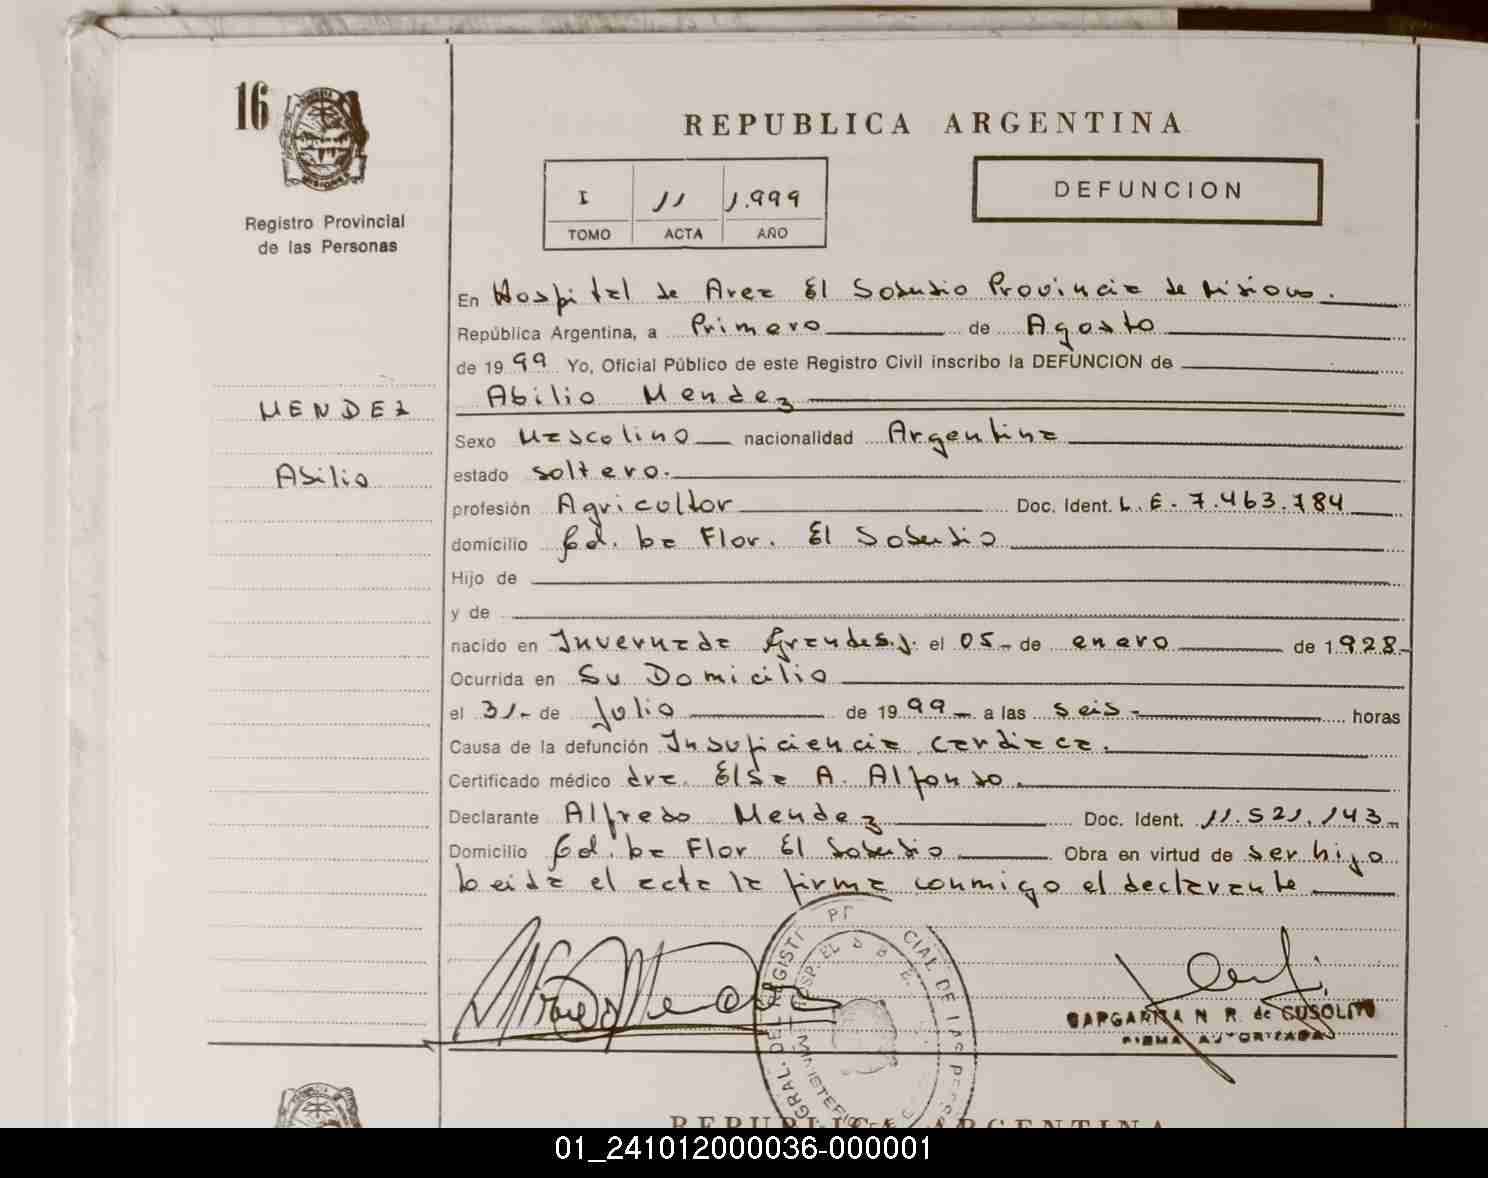 16
REPUBLICA ARGENTINA
I 11 1.999
TOMO ACTA AÑO
DEFUNCION
Registro Provincial
de las Personas
MENDEZ
Abilio
En Hospital de Area El Soberbio Provincia de Misiones.
República Argentina, a Primero de Agosto
de 1999 Yo, Oficial Público de este Registro Civil inscribo la DEFUNCION de
Abilio Mendez
Sexo Masculino nacionalidad Argentina
estado soltero.
profesión Agricultor Doc. Ident. L.E. 7.463.784
domicilio Col. La Flor. El Soberbio
Hijo de
y de
nacido en Invernada Grande S.J. el 05- de enero de 1.928-
Ocurrida en Su Domicilio
el 31- de Julio de 1999- a las seis- horas
Causa de la defunción Insuficiencia cardiaca.
Certificado médico dra. Elsa A. Alfonso.
Declarante Alfredo Mendez Doc. Ident. 11.521.143-
Domicilio Col. La Flor El Soberbio Obra en virtud de ser hijo
Leida el acta la firma conmigo el declarante
MARGARITA N R. de CUSOLITO
FIRMA AUTORIZADA
REPUBLICA ARGENTINA
01_241012000036-000001